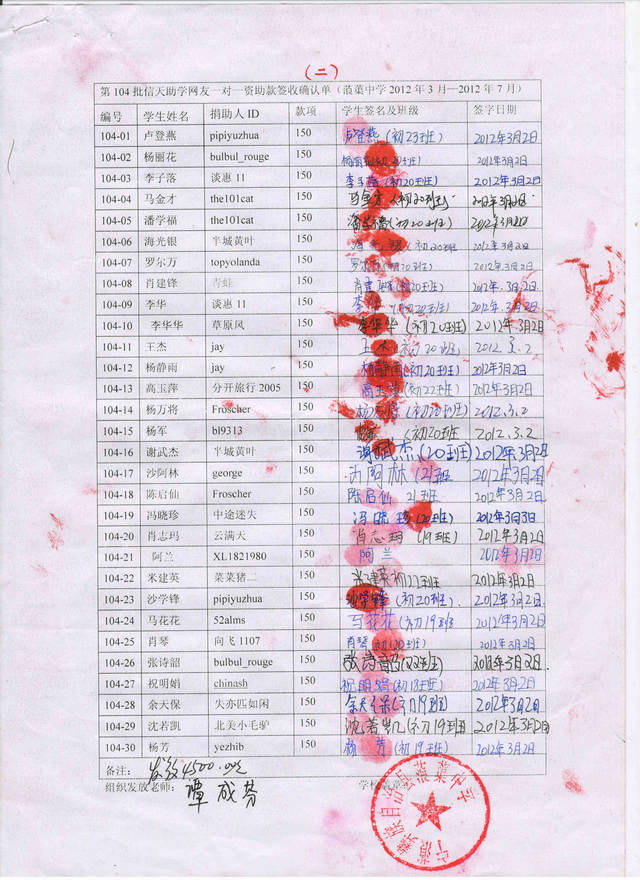 (二)
第104批信天助学网友一对一资助款签收确认单(蒗蕖中学2012年3月—2012年7月)
编号 学生姓名 捐助人ID 款项 学生签名及班级 签字日期
104-01 卢登燕 pipiyuzhua 150 卢登燕(初23班) 2012年3月2日
104-02 杨丽花 bulbul_rouge 150 杨丽花(初20班) 2012年3月2日
104-03 李子落 谈惠11 150 李子落(初20班) 2012年3月2日
104-04 马金才 the101cat 150 马金才(初20班) 2012年3月2日
104-05 潘学福 the101cat 150 潘学福(初20班) 2012年3月2日
104-06 海光银 半城黄叶 150 海光银(初20班) 2012年3月2日
104-07 罗尔万 topyolanda 150 罗尔万(初20班) 2012年3月2日
104-08 肖建锋 青蛙 150 肖建锋(初20班) 2012年3月2日
104-09 李华 谈惠11 150 李华(初20班) 2012年3月2日
104-10 李华华 草原风 150 李华华(初20班) 2012年3月2日
104-11 王杰 jay 150 王杰(初20班) 2012.3.2
104-12 杨静雨 jay 150 杨静雨(初20班) 2012年3月2日
104-13 高玉萍 分开旅行2005 150 高玉萍(初22班) 2012年3月2日
104-14 杨万将 Froscher 150 杨万将(初20班) 2012.3.2
104-15 杨军 bl9313 150 (初20班 2012.3.2
104-16 谢武杰 半城黄叶 150 谢武杰(20班) 2012年3月2日
104-17 沙阿林 george 150 沙阿林(21班 2012年3月2日
104-18 陈启仙 Froscher 150 陈启仙 21班 2012年3月2日
104-19 冯晓珍 中途迷失 150 冯晓珍(20班) 2012年3月3日
104-20 肖志玛 云满天 150 肖志玛(19班) 2012年3月2日
104-21 阿兰 XL1821980 150 阿兰 2012年3月2日
104-22 米建英 菜菜猪二 150 米建英初22班 2012年3月2日
104-23 沙学锋 pipiyuzhua 150 沙学锋(初20班) 2012年3月2日
104-24 马花花 52alms 150 马花花(初19班 2012年3月2日
104-25 肖琴 向飞1107 150 肖琴(初20班) 2012年3月2日
104-26 张诗韶 bulbul_rouge 150 张诗韶(22班) 2012年3月2日
104-27 祝明娟 chinash 150 祝明娟(初18班) 2012年3月2日
104-28 余天保 失亦匹如闲 150 余天保(初19班) 2012年3月2日
104-29 沈若凯 北美小毛驴 150 沈若凯(初19班) 2012年3月2日
104-30 杨芳 yezhib 150 杨芳(初19班) 2012年3月2日
备注: 发放4500.00元
组织发放老师: 覃成芬 学校
宁蒗彝族自治县蒗蕖中学